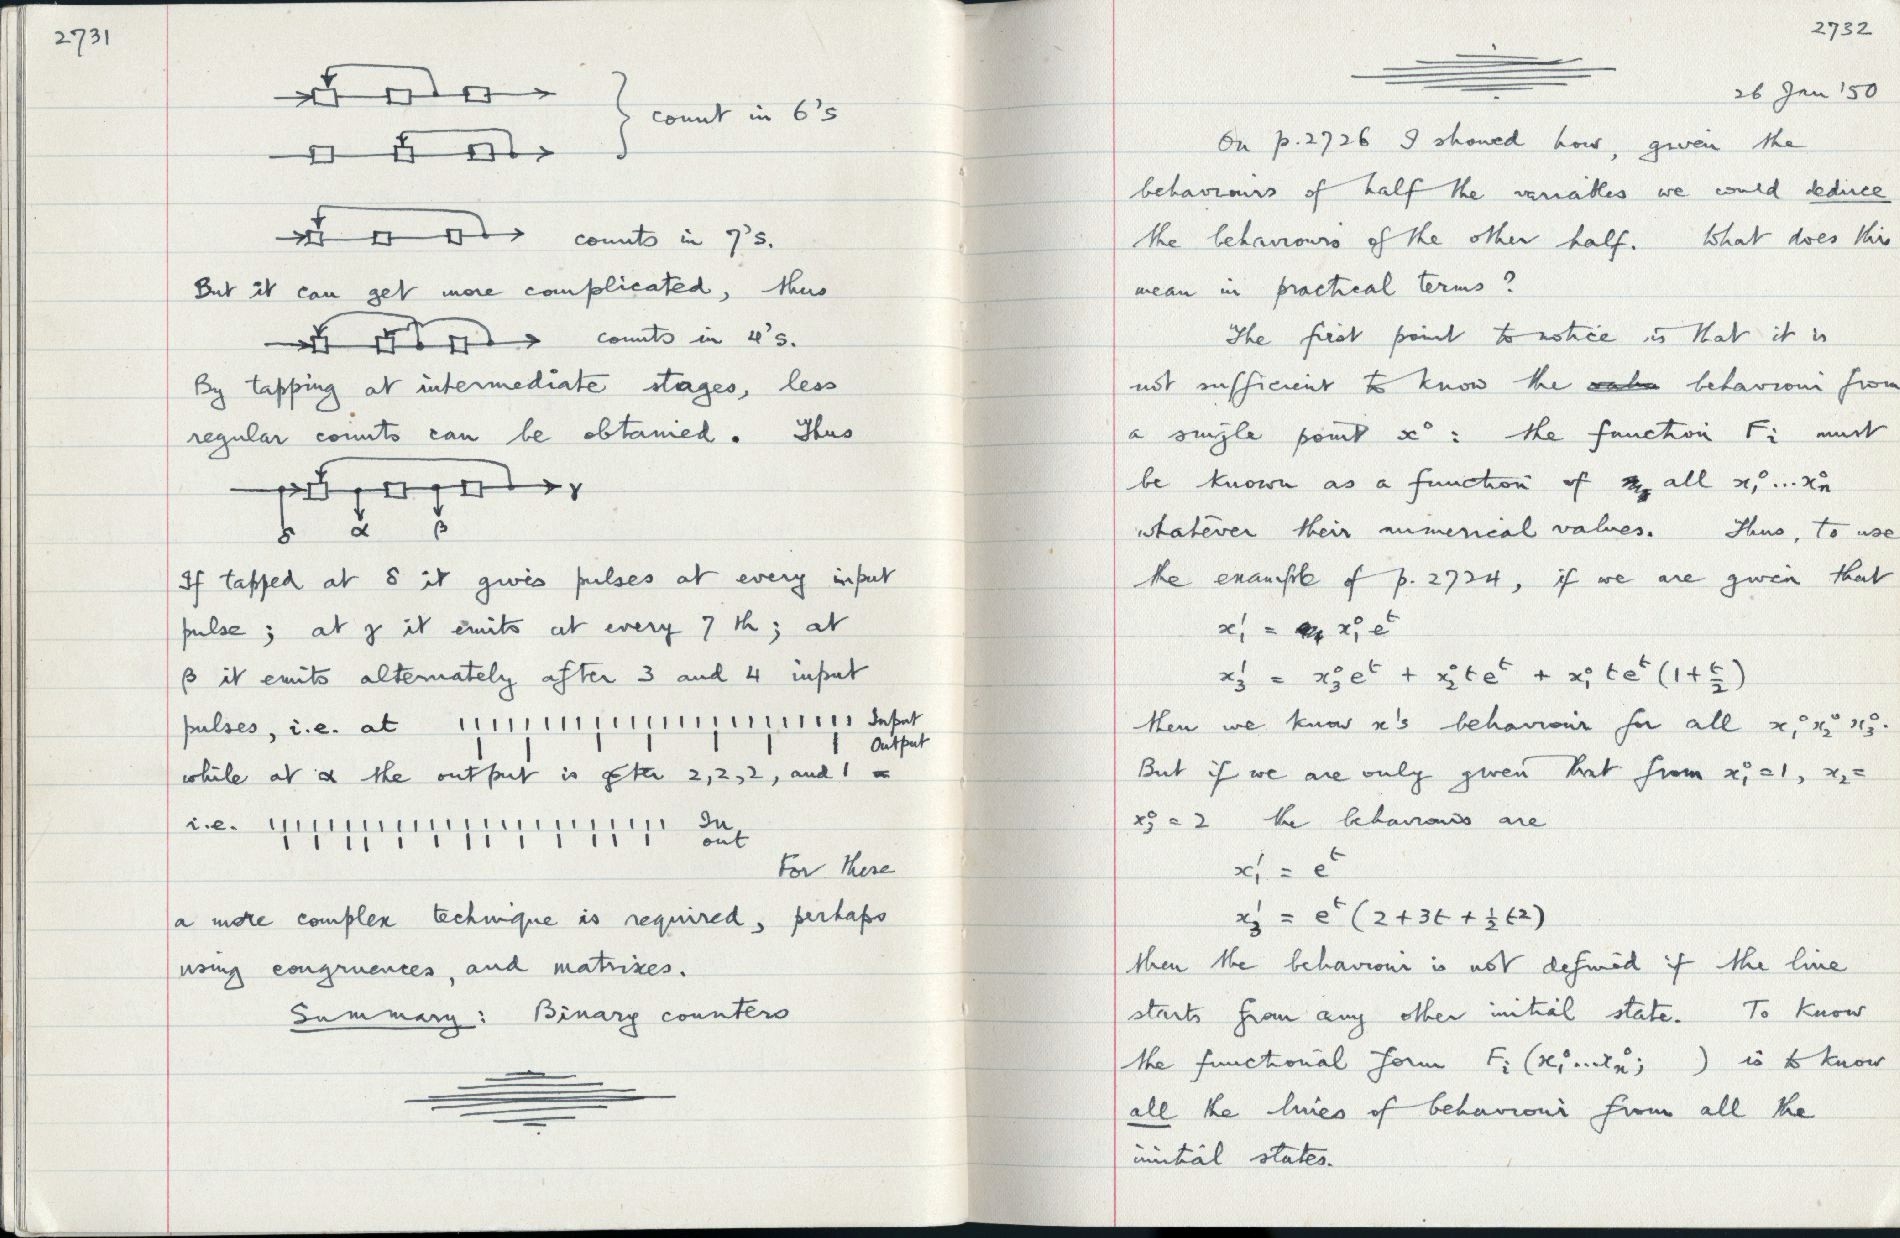 2731
count in 6's
counts in 7's.
But it can get more complicated, thus
counts in 4's.
By tapping at intermediate stages, less
regular counts can be obtained. Thus
γ
δ α β
If tapped at δ it gives pulses at every input
pulse; at γ it emits at every 7 th; at
β it emits alternately after 3 and 4 input
pulses, i.e. at Input
Output
while at α the output is after 2,2,2, and 1
i.e. In
out
For these
a more complex technique is required, perhaps
using congruences, and matrixes.
Summary: Binary counters
2732
26 Jan '50
On p.2726 I showed how, given the
behaviours of half the variables we could deduce
the behaviours of the other half. What does this
mean in practical terms?
The first point to notice is that it is
not sufficient to know the behaviour from
a single point x⁰: the function Fᵢ must
be known as a function of all x₁⁰...xₙ⁰
whatever their numerical values. Thus, to use
the example of p. 2724, if we are given that
x₁' = x₁⁰ eᵗ
x₃' = x₃⁰eᵗ + x₂⁰teᵗ + x₁⁰ teᵗ(1+t/2)
then we know x's behaviour for all x₁⁰x₂⁰x₃⁰.
But if we are only given that from x₁⁰=1, x₂=
x₃⁰=2 the behaviours are
x₁' = eᵗ
x₃' = eᵗ(2+3t+½t2)
then the behaviour is not defined if the line
starts from any other initial state. To know
the functional form Fᵢ(x₁⁰...xₙ⁰; ) is to know
all the lines of behaviour from all the
initial states.